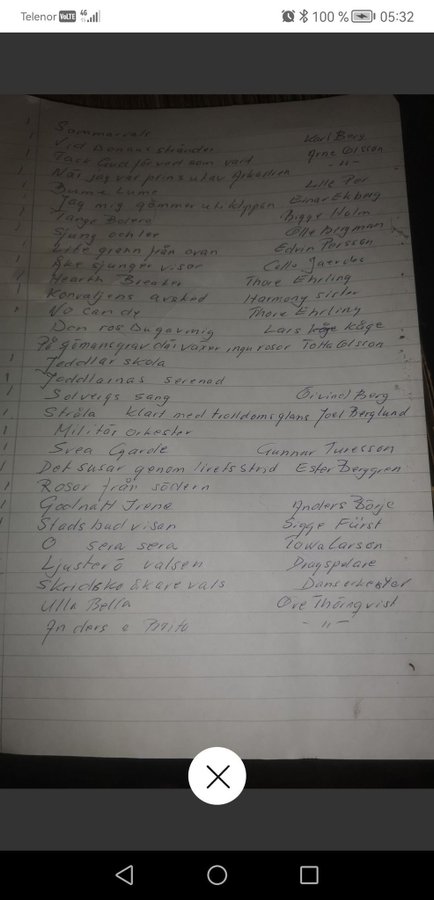 Telenor VoLTE 4G 100 % 05:32
Sommarvals Karl Berg
Vid Donaus stränder Arne Olsson
Tack Gud för ved som varit -"-
När jag var prins utav Arkadien
Bjume Lume Lille Per
Jag mig gömmer uti klippan Einar Ekberg
Tango Bolero Bigge Holm
Sjung och le Olle Bergman
Lite grann från ovan Edvin Persson
Åke sjunger visor Calle
Hearth Breaker Thore Ehrling
Konvaljens avsked Harmony sister
No can dy Thore Ehrling
Den ros Du gav mig Lars Köge
På gömansgrav där växer inga rosor Totta Olsson
Jeddlar skola
Jeddlarnas serenad
Solveigs sång Öivind Berg
Stråla klart med trolldomsglans Joel Berglund
Militär orkester
Svea Garde Gunnar Turesson
Det susar genom livets strid Ester Berggren
Rosor från södern
Godnatt Irene Anders Börje
Stadsbudvisan Sigge Fürst
O sera sera Towa Carson
Ljusterö valsen Dragspelare
Skridskoåkare vals Dansorkester
Ulla Bella Ove Thörnqvist
Anders o Britta -"-